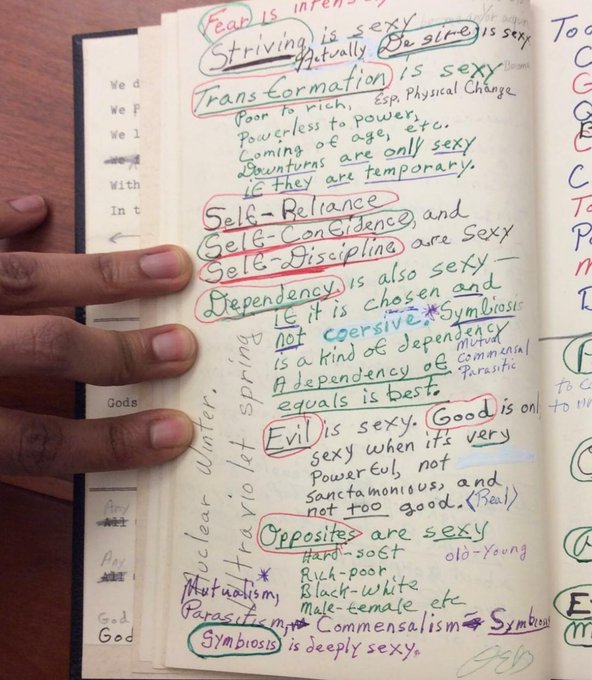 Fear is intens
Striving is sexy
Actually Desire is sexy
Transformation is sexy
Esp. Physical Change
Poor to rich,
Powerless to power,
Coming of age, etc.
Downturns are only sexy
if they are temporary.
Self-Reliance
Self-Confidence, and
Self-Discipline are sexy
Dependency is also sexy —
if it is chosen and
not coersive. *Symbiosis
is a kind of dependency
Mutual
Commensal
Parasitic
A dependency of
equals is best.
Evil is sexy. Good is onl
sexy when it's very
Powerful, not
sanctamonious, and
not too good. <Real>
Opposites are sexy
Hard-soft
old-Young
Rich-poor
Black-white
Male-female etc
Mutualism, *
Parasitism, Commensalism = Symbiosis
Symbiosis is deeply sexy.
Nuclear Winter.
Ultraviolet spring
We d
We
We l
We
With
In t
Gods
Any
All
Any
All
God
God
Too
C
G
Q
E
C
To
P
m
to
to
E
m